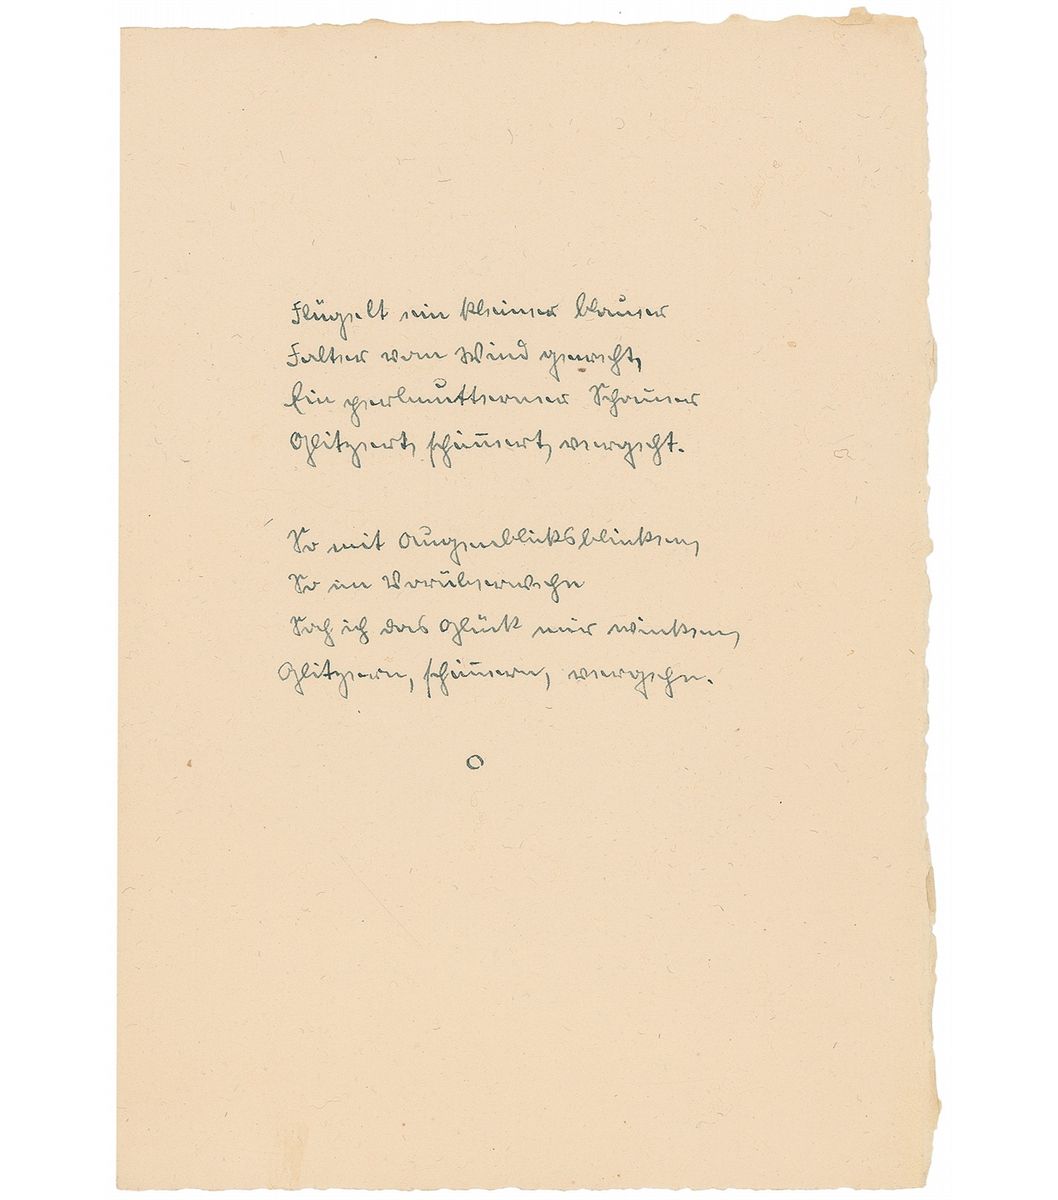 Flügelt ein kleiner blauer
Falter vom Wind geweht,
Ein perlmutterner Schauer
Glitzert, schim̅ert, vergeht.
So mit Augenblicksblinken,
So im Vorüberwehn
Sah ich das Glück mir winken,
Glitzern, schim̅ern, vergehn.